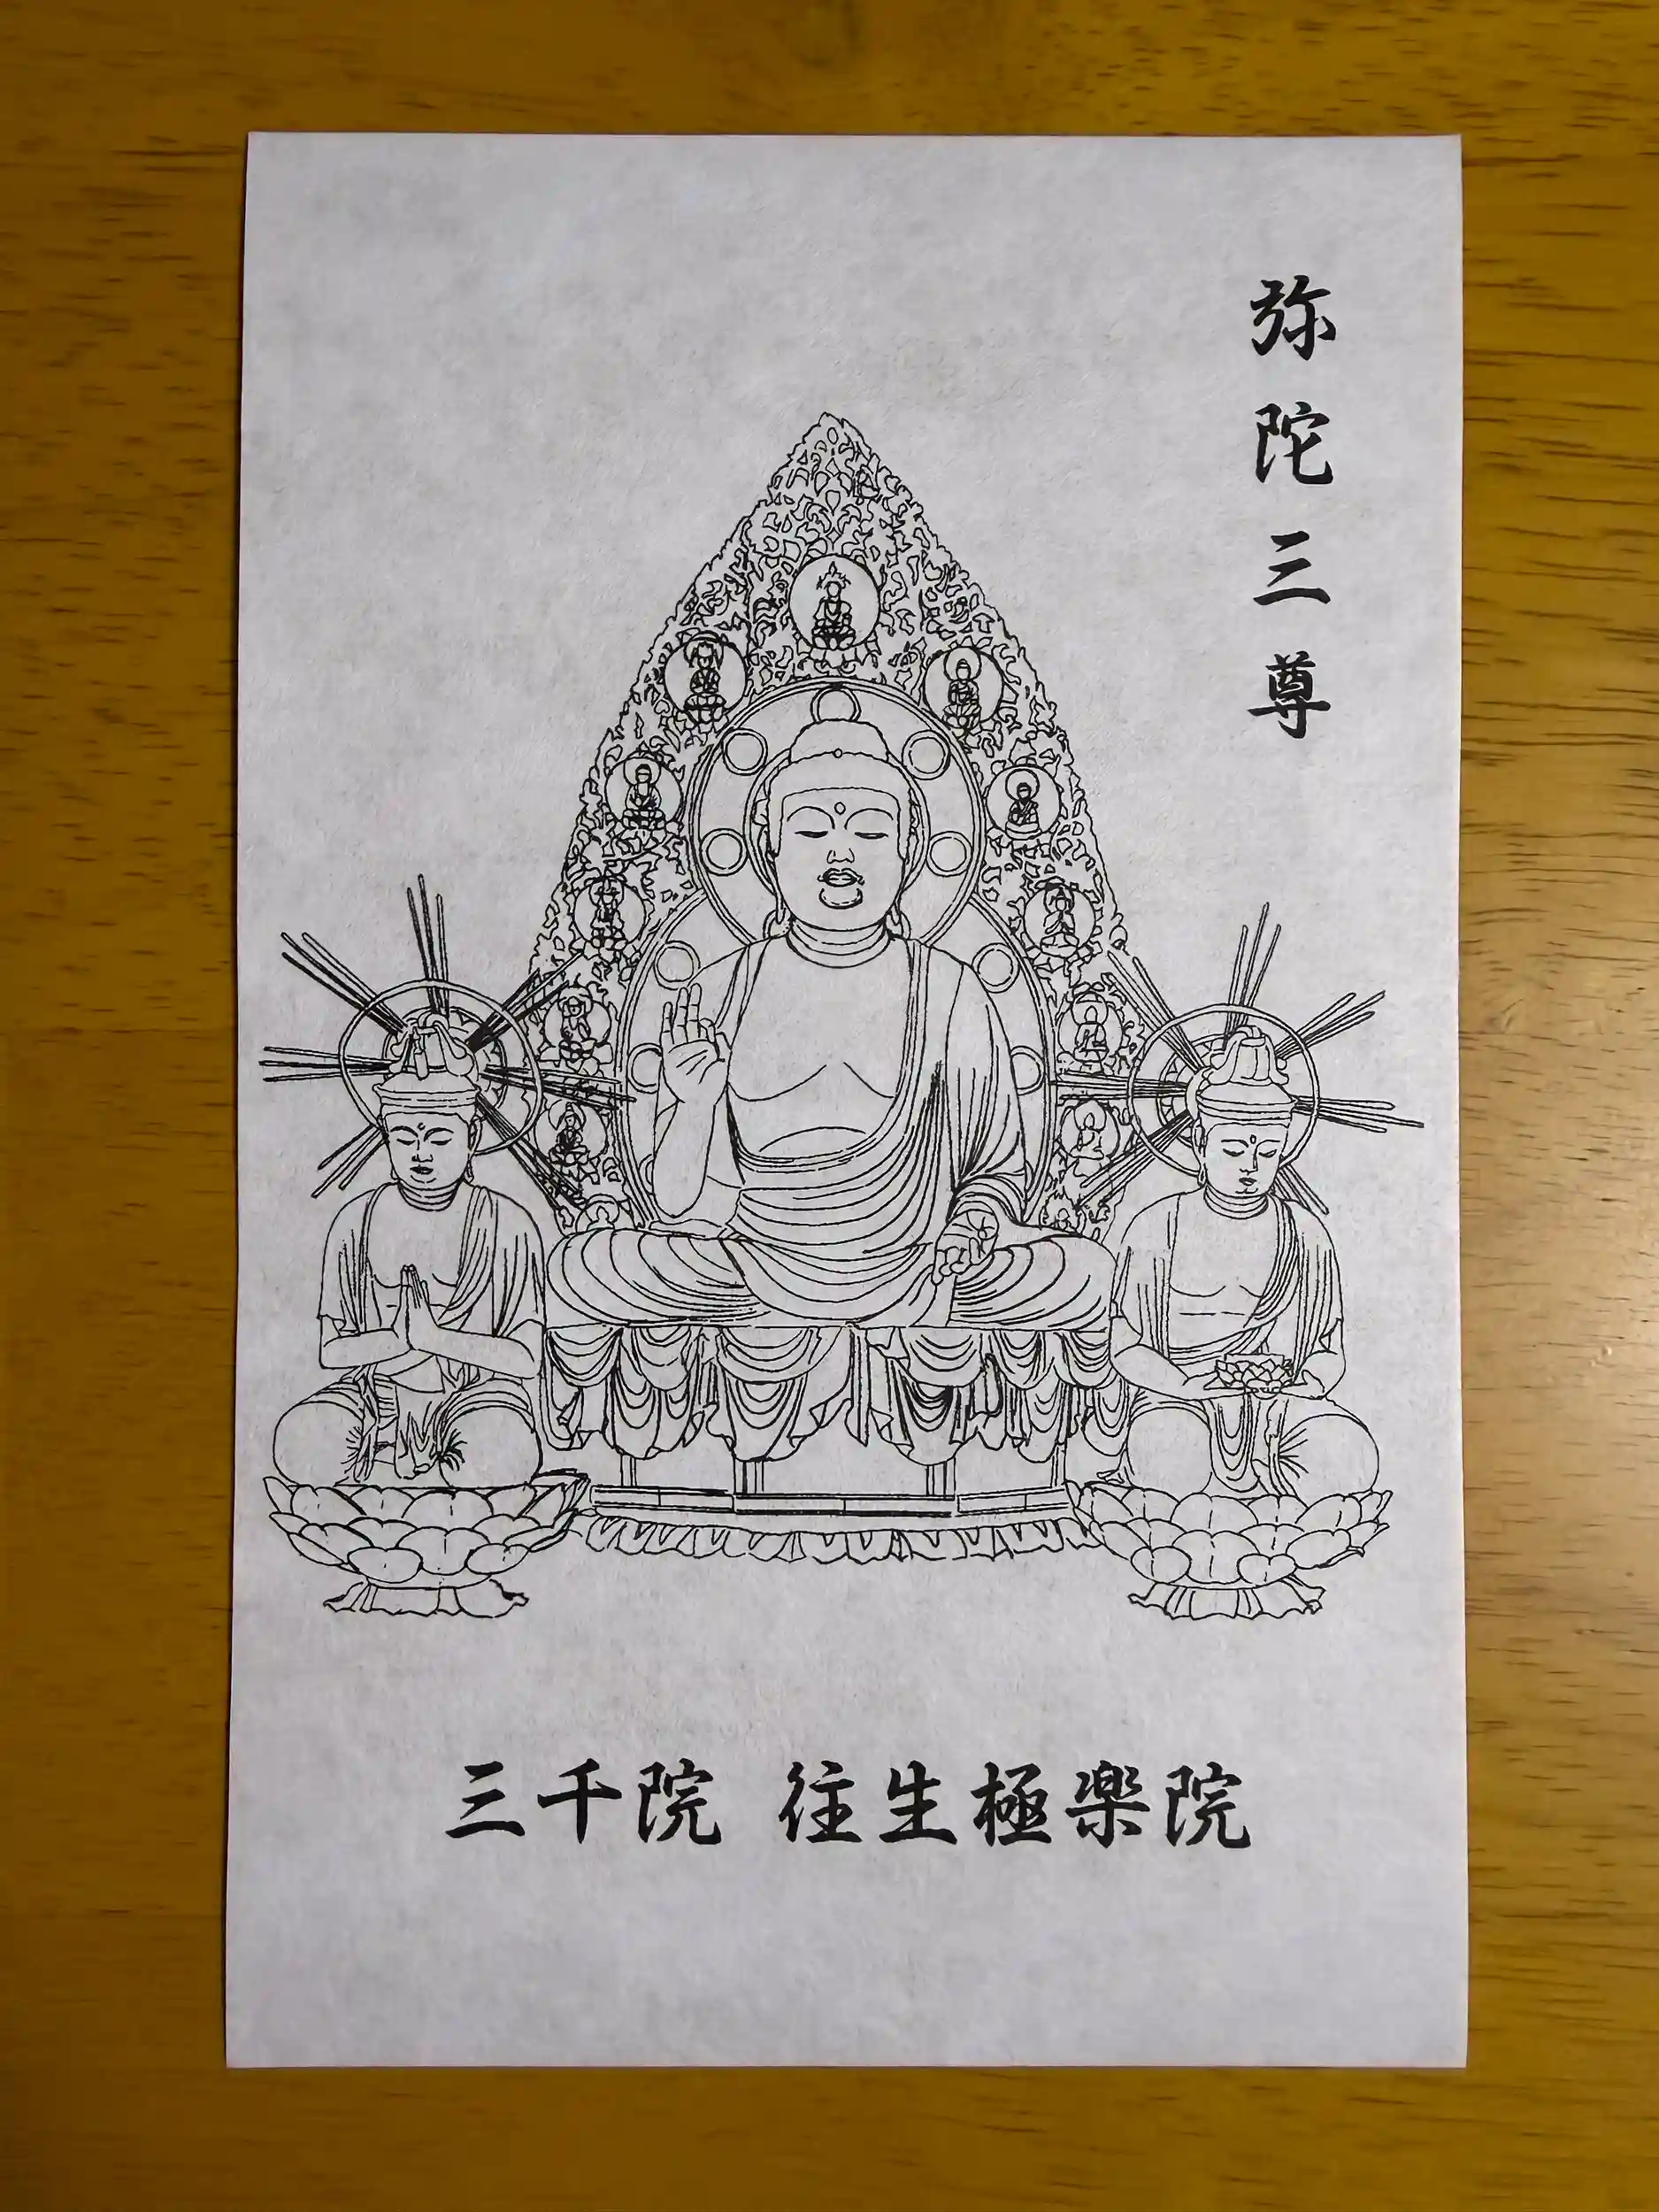 弥陀三尊
三千院 往生極楽院